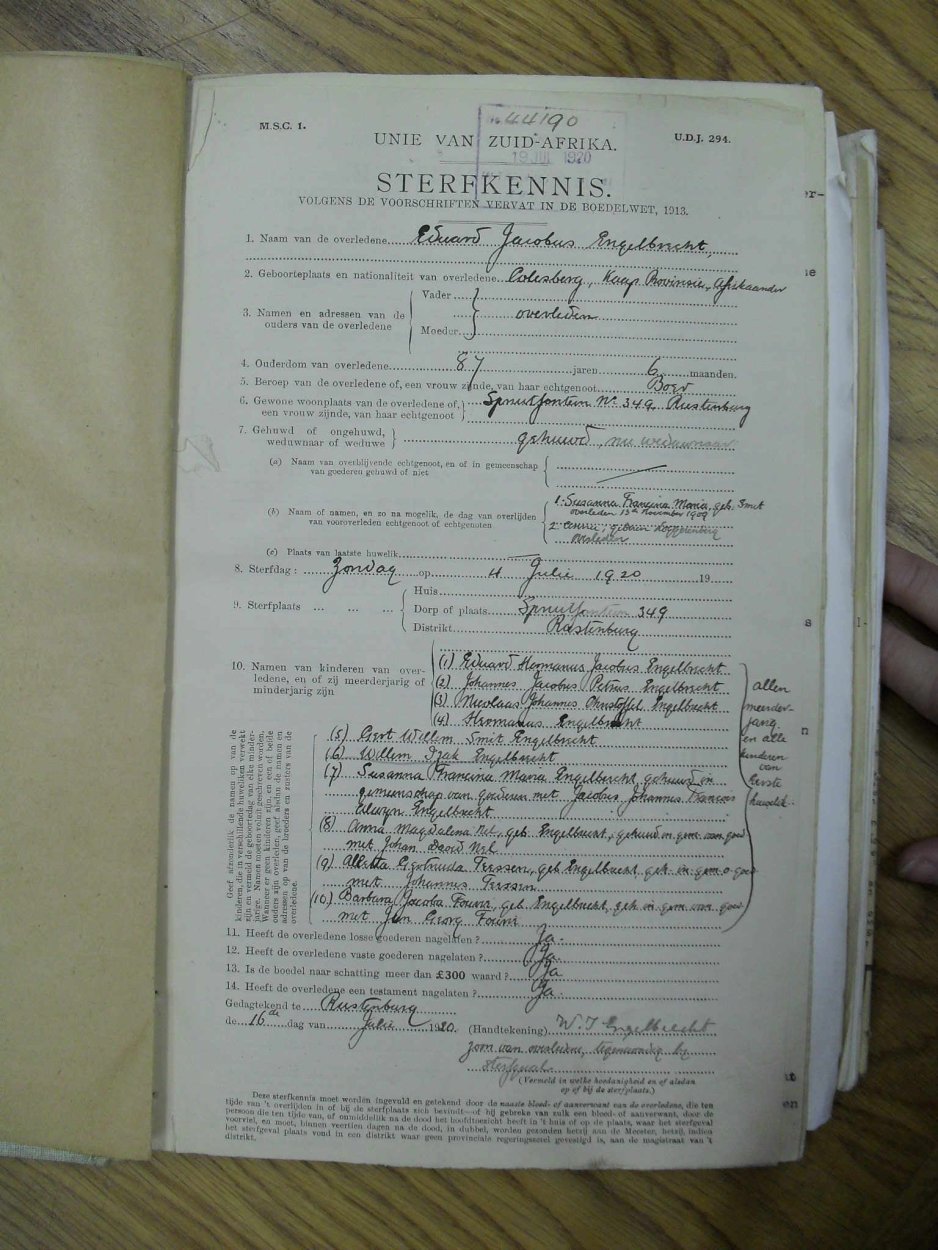 No 44190
M.S.C. 1.
U.D.J. 294.
UNIE VAN ZUID-AFRIKA.
19 JUL 1920
STERFKENNIS.
VOLGENS DE VOORSCHRIFTEN VERVAT IN DE BOEDELWET, 1913.
1. Naam van de overledene Eduard Jacobus Engelbrecht,
2. Geboorteplaats en nationaliteit van overledene Colesberg, Kaap Provinsie, Afrikaander
3. Namen en adressen van de ouders van de overledene
Vader
overleden
Moeder
4. Ouderdom van overledene 87 jaren 6 maanden.
5. Beroep van de overledene of, een vrouw zijnde, van haar echtgenoot Boer
6. Gewone woonplaats van de overledene of, een vrouw zijnde, van haar echtgenoot
Spruitfontein No 349, Rustenburg
7. Gehuwd of ongehuwd, weduwnaar of weduwe
gehuwd, nu weduwnaar
(a) Naam van overblijvende echtgenoot, en of in gemeenschap van goederen gehuwd of niet
(b) Naam of namen, en zo na mogelik, de dag van overlijden van vooroverleden echtgenoot of echtgenoten
1. Susanna Francina Maria, geb. Smit
overleden 13de November 1909
2
overleden
(c) Plaats van laatste huwelik
8. Sterfdag: Zondag op 4 Julie 1920 19
9. Sterfplaats
Huis
Dorp of plaats Spruitfontein 349
Distrikt Rustenburg
10. Namen van kinderen van overledene, en of zij meerderjarig of minderjarig zijn
(1) Eduard Hermanus Jacobus Engelbrecht
(2) Johannes Jacobus Petrus Engelbrecht
(3) Nicolaas Johannes Christoffel Engelbrecht
(4) Hermanus Engelbrecht
(5) Gert Willem Smit Engelbrecht
(6) Willem Izak Engelbrecht
(7) Susanna Francina Maria Engelbrecht gehuwd in
gemeenschap van goederen met Jacobus Johannes Francois
Engelbrecht
(8) Anna Magdalena Nel, geb. Engelbrecht, gehuwd in gem van goed
met Johan David Nel
(9) Aletta Gertruida Terssen, geb Engelbrecht geh. in gem v goed
met Johannes Terssen
(10) Barbara Jacoba Fourie, geb Engelbrecht, geh in gem van goed
met Jan Georg Fourie
allen
meerder-
jarig
en alle
kinderen
van
eerste
huwelik.
Geef afzonderlik de namen op van de
kinderen, die in verschillende huweliken verwekt
zijn en vermeld de geboortedag van elke minder-
jarige. Namen moeten voluit geschreven worden.
Wanneer er geen kinderen zijn, en een of beide
ouders zijn overleden, geef alsdan de namen en
adressen op van de broeders en zusters van de
overledene.
11. Heeft de overledene losse goederen nagelaten? Ja.
12. Heeft de overledene vaste goederen nagelaten? Ja.
13. Is de boedel naar schatting meer dan £300 waard? Ja
14. Heeft de overledene een testament nagelaten? Ja.
Gedagtekend te Rustenburg
de 16de dag van Julie 1920.
(Handtekening) W. J Engelbrecht
zoon van overledene, tegenwoordig by
sterfgeval.
(Vermeld in welke hoedanigheid en of alsdan
op of bij de sterfplaats.)
Deze sterfkennis moet worden ingevuld en getekend door de naaste bloed- of aanverwant van de overledene, die ten
tijde van 't overlijden in of bij de sterfplaats zich bevindt—of bij gebreke van zulk een bloed- of aanverwant, door de
persoon die ten tijde van, of onmiddelik na de dood het hoofdtoezicht heeft in 't huis of op de plaats, waar het sterfgeval
voorviel, en moet, binnen veertien dagen na de dood, in dubbel, worden gezonden hetzij aan de Meester, hetzij, indien
het sterfgeval plaats vond in een distrikt waar geen provinciale regeringszetel gevestigd is, aan de magistraat van 't
distrikt.